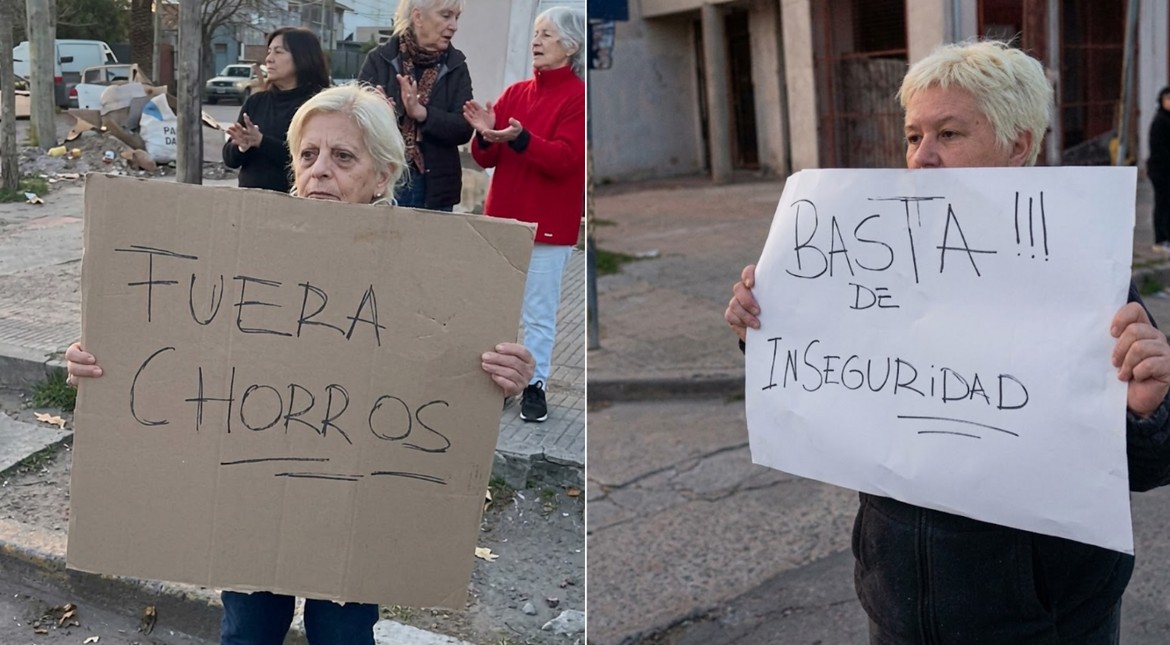 FUERA
CHORROS
BASTA!!!
DE
INSEGURIDAD